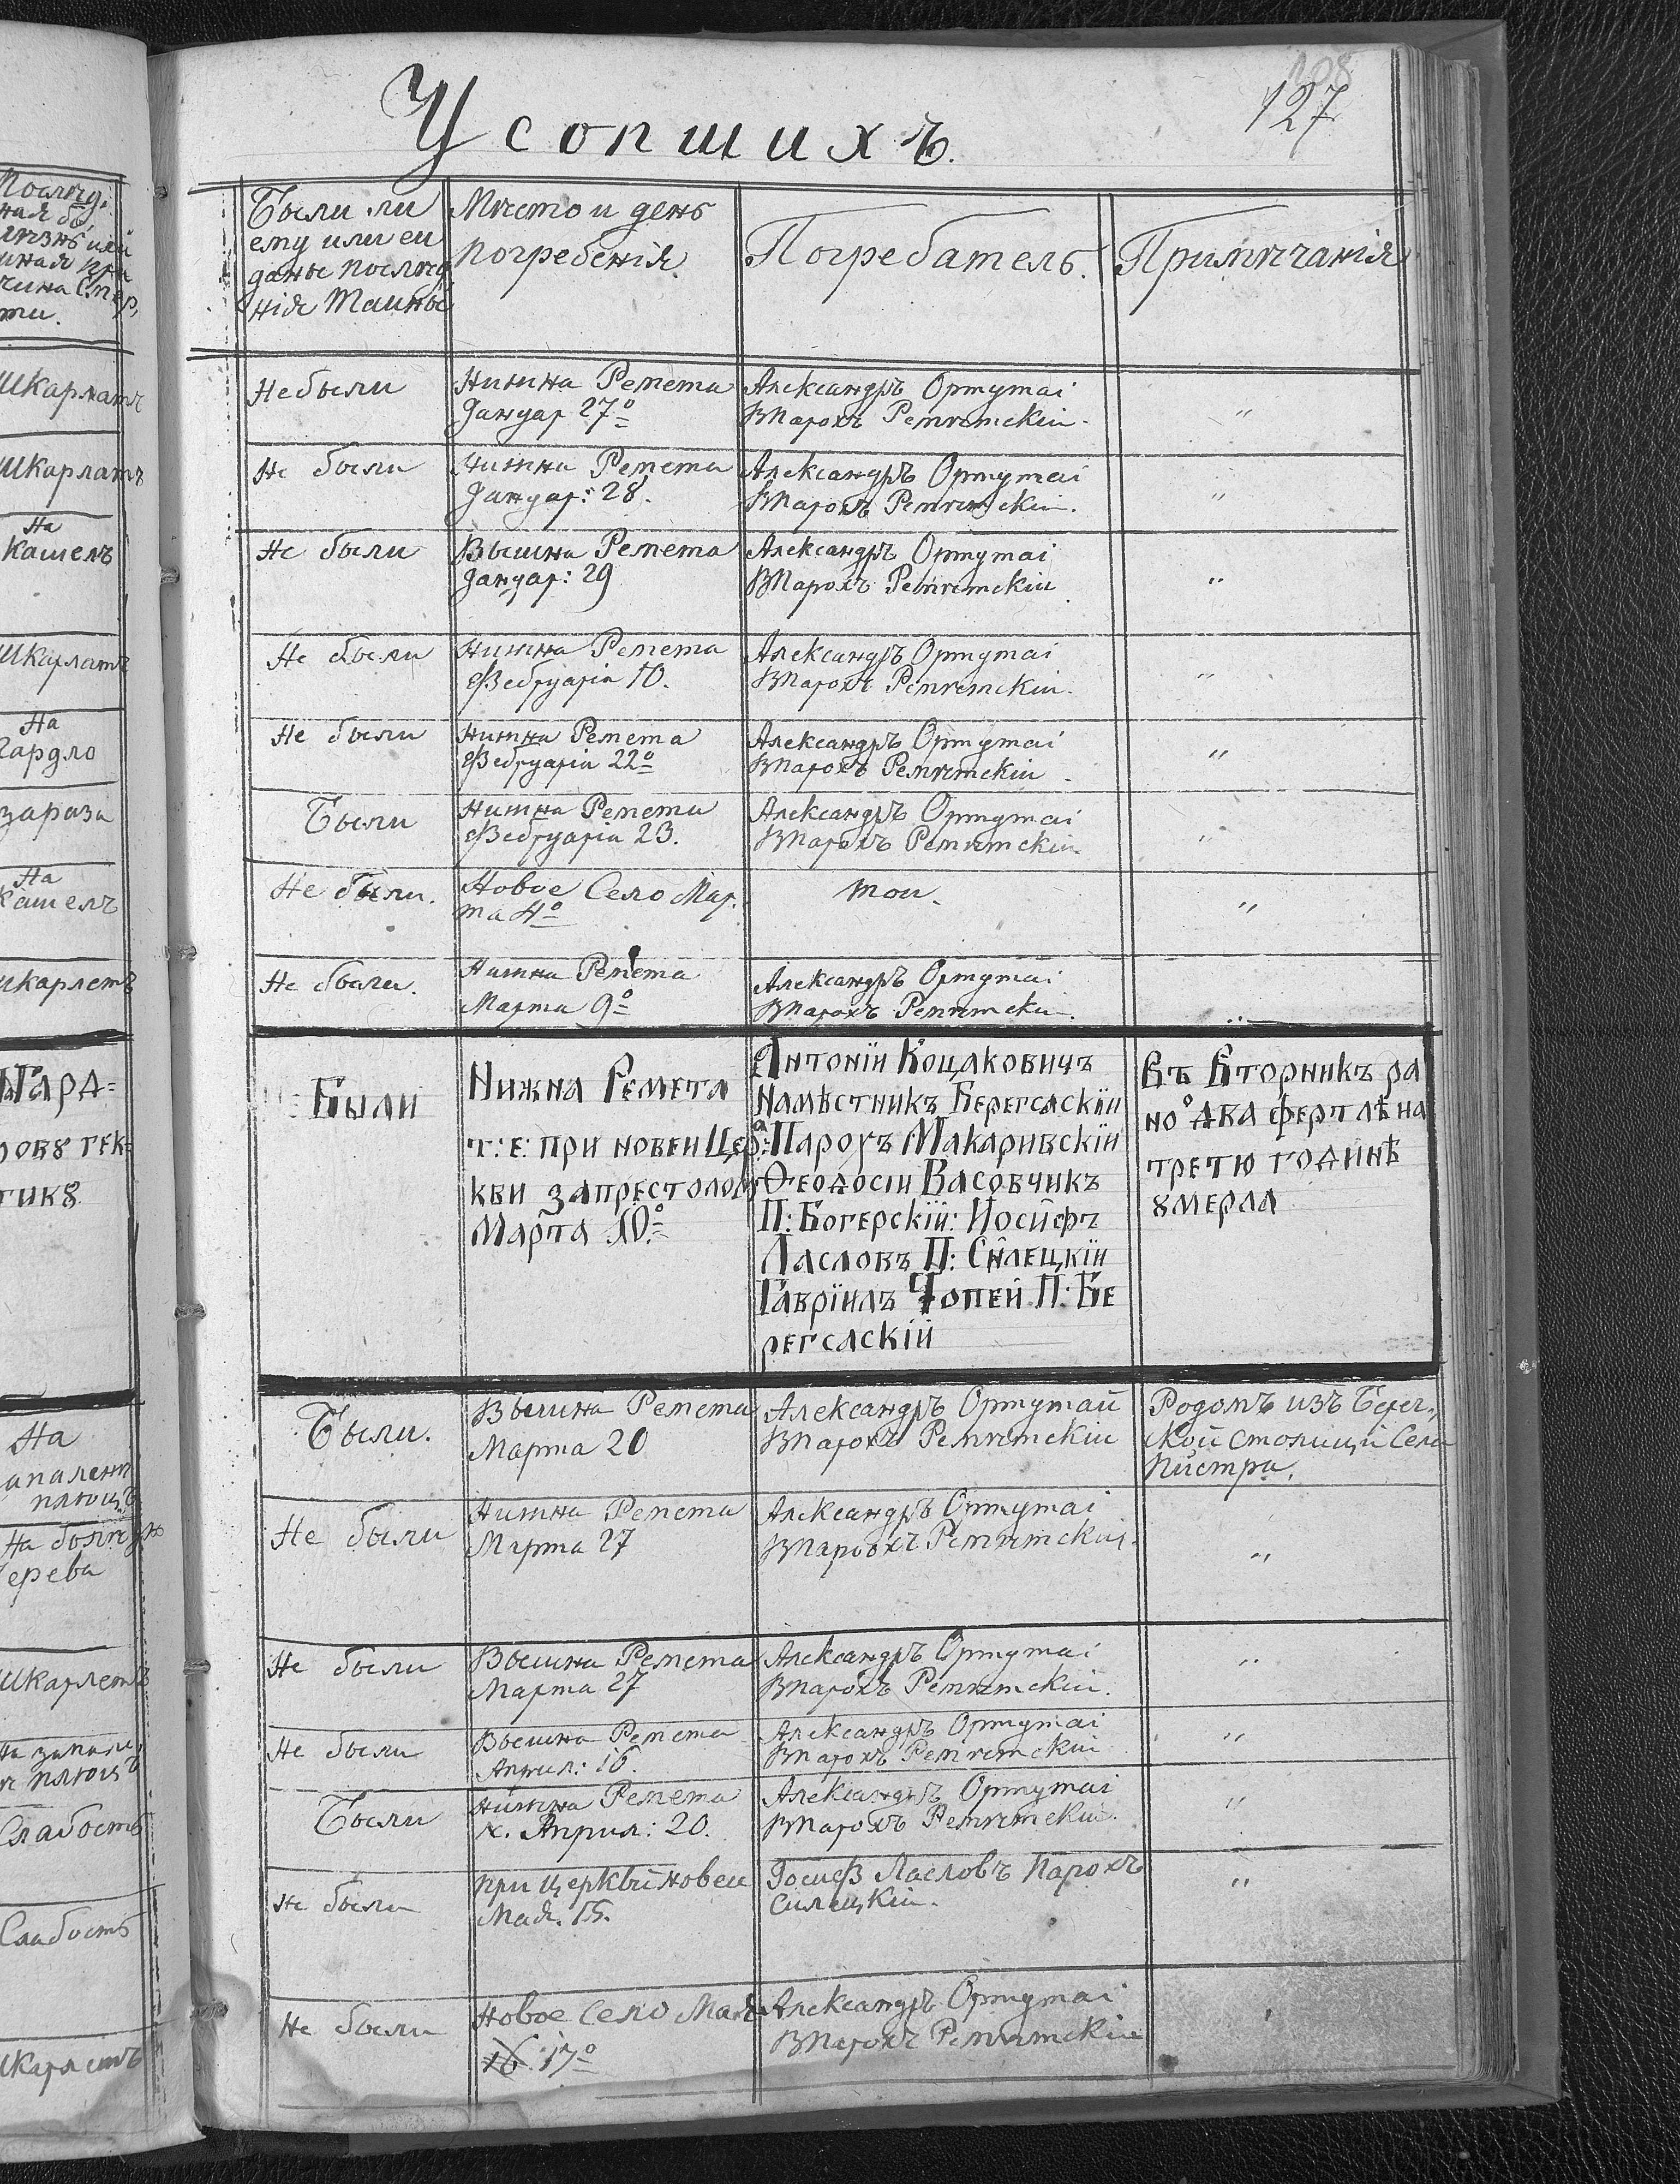 Усопшихъ.
127
Были ли
ему или еи
даны послѣд
нія Таины
Мѣсто и день
погребенія.
Погребатель.
Примѣчанія
Не были
Нижна Ремета
Януар 27º
Александръ Ортутаі
ВПарохъ Реметскіи.
"
Не были
Нижна Ремета
Януар: 28.
Александръ Ортутаі
ВПарохъ Реметскіи.
"
Не были
Вышна Ремета
Януар: 29
Александръ Ортутаі
ВПарохъ Реметскіи
"
Не были
Нижна Ремета
Февруаріа 10.
Александръ Ортутаі
ВПарохъ Реметскіи.
"
Не были
Нижна Ремета
Февруаріа 22º
Александръ Ортутаі
ВПарохъ Реметскіи
"
Были
Нижна Ремета
Февруаріа 23.
Александръ Ортутаі
ВПарохъ Реметскіи
"
Не были.
Новое Село Мар.
та 4º
тои.
"
Не были.
Нижна Ремета
Марта 9º
Александръ Ортутаі
ВПарохъ Реметски.
"
Были
Нижна Ремета
т: е: при новеи Цер
кви запрестолом
Марта 10.º
Антоніи Коцаковичъ
Намѣстникъ Берегсаскіи
Парохъ Макаривскіи
Феодосіи Васовчикъ
П: Богерскіи: Иосифъ
Ласловъ П: Силецкіи
Гавріилъ Чопей П: Бе
регсаскіи
Въ Вторникъ ра
но º два фертлѣ на
третю годинѣ
ꙋмерла
Были.
Вышна Ремета
Марта 20
Александръ Ортутаи
ВПарохъ Реметскіи
Родомъ изъ Берег„
ской столици Села
Быстра.
Не были
Нижна Ремета
Марта 27
Александръ Ортутаі
ВПарохъ Реметскіи.
"
Не были
Вышна Ремета
Марта 27
Александръ Ортутаі
ВПарохъ Реметскіи.
"
Не были
Вышна Ремета
Април: 16.
Александръ Ортутаі
ВПарохъ Реметскіи
"
Были
Нижна Ремета
Април: 20.
Александръ Ортутаі
ВПарохъ Реметскіи.
"
Не были
при церкви новеи
Мая. 15.
Іосиф Ласловъ Парохъ
Силецкіи.
"
Не были
Новое Село Мая
16 17º
Александръ Ортутаі
ВПарохъ Реметскіи
"